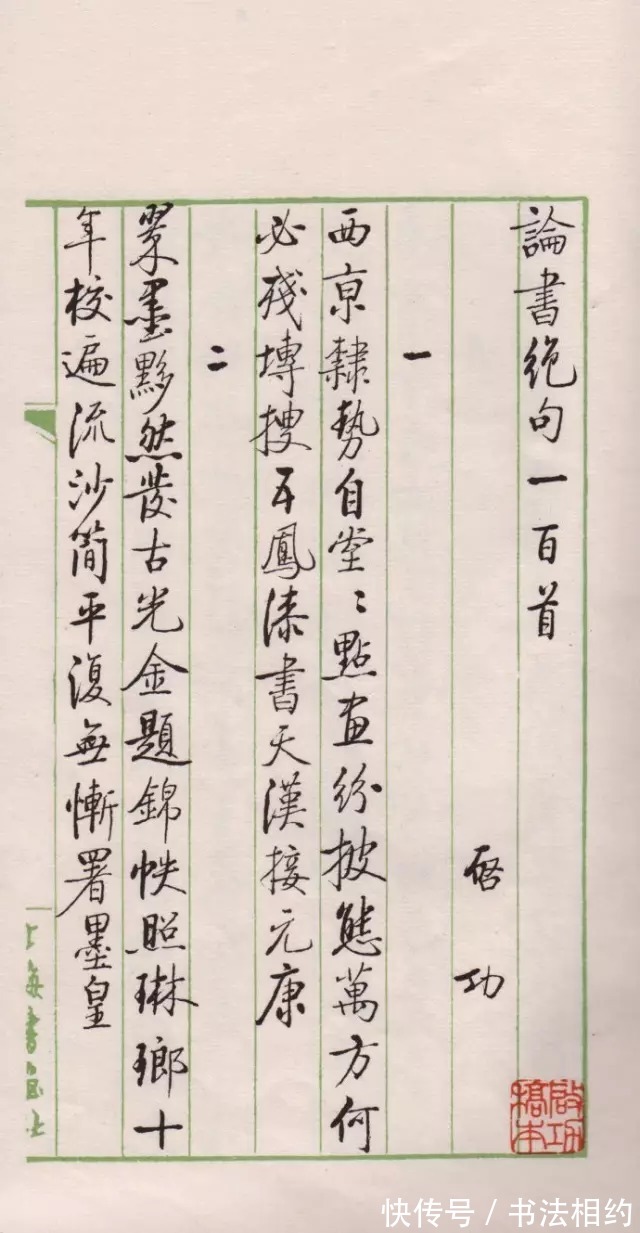 論書絕句一百首
啓功
一
西京隸勢自堂〻點畫紛披態萬方何
必殘塼搜五鳳漆書天漢接元康
二
翠墨黟然發古光金題錦帙照琳瑯十
年校遍流沙簡平復無慚署墨皇
上海書畫社
啟功稿本
快传号 / 书法相约